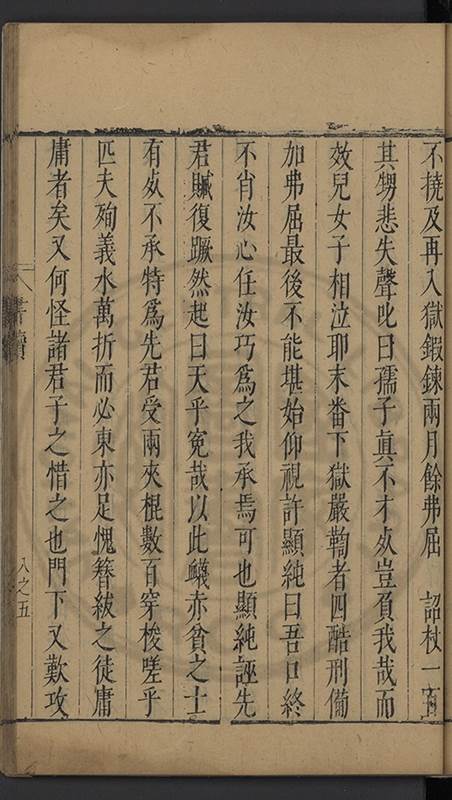 不撓及再入獄鍛鍊兩月餘弗屈　詔杖一百
其甥悲失聲叱曰孺子真不才奴豈負我哉而
效兒女子相泣耶末番下獄嚴鞫者四酷刑備
加弗屈最後不能堪始仰視許顯純曰吾口終
不肖汝心任汝巧為之我承焉可也顯純誣先
君贓復蹶然起曰天乎冤哉以此衊亦貧之士
有奴不承特為先君受兩夾棍數百穿梭嗟乎
匹夫殉義水萬折而必東亦足愧簪紱之徒庸
庸者矣又何怪諸君子之惜之也門下又歎攻
書牘
八之五